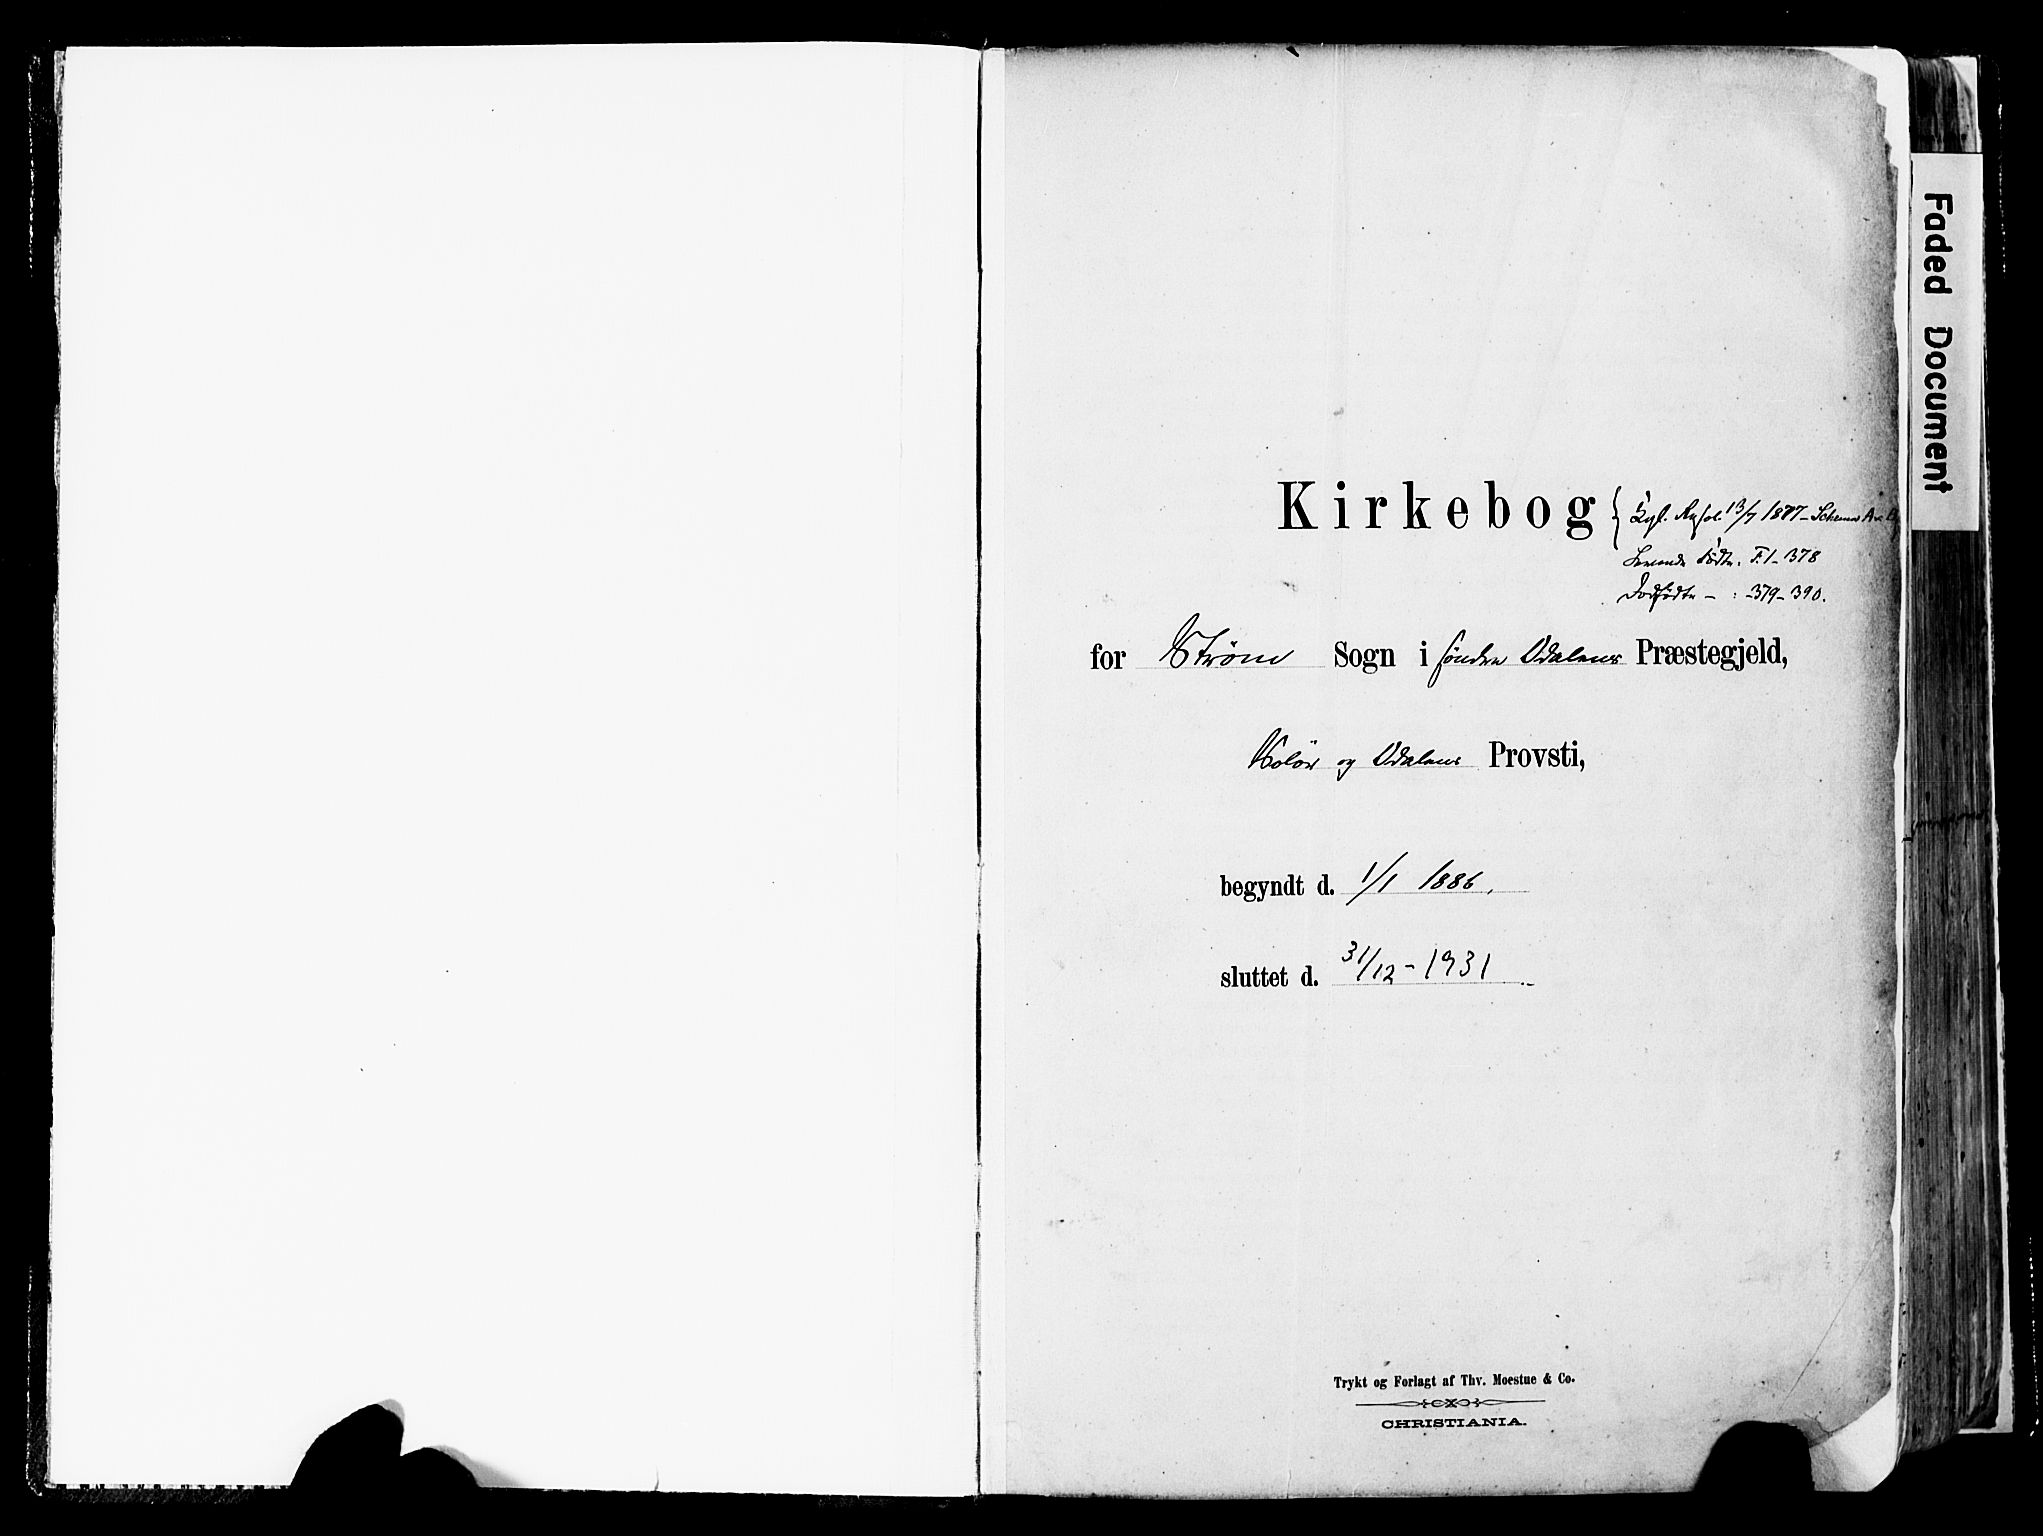 Kirkebog { Kgl. Resol. 13/7 1877 – Schema A
Levende Fødte. F. 1 – 378
Dødfødte – : – 379 – 390.
for Strøm Sogn i søndre Odalens Præstegjeld,
Solør og Odalens Provsti,
begyndt d. 1/1 1886.
sluttet d. 31/12 – 1931
Trykt og Forlagt af Thv. Moestue & Co.
CHRISTIANIA.
Faded Document